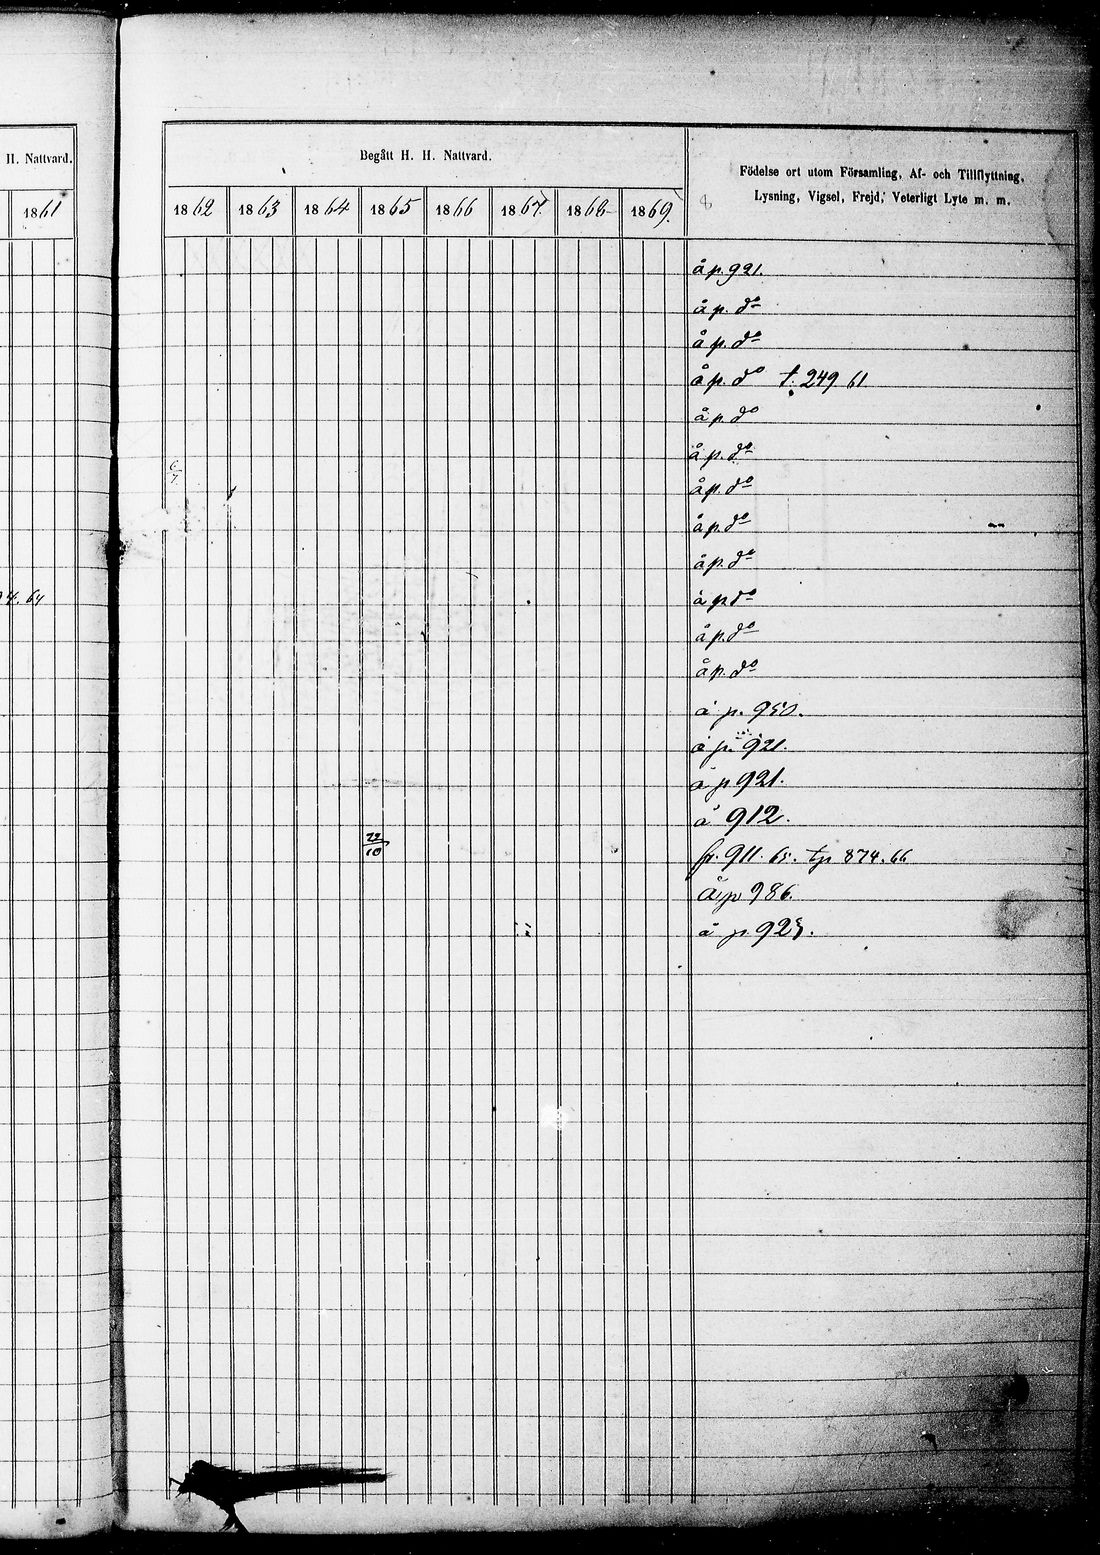 H. Nattvard.
1861
4. 64
Begått H. H. Nattvard.
Födelse ort utom Församling, Af- och Tillflyttning,
Lysning, Vigsel, Frejd, Veterligt Lyte m. m.
1862 1863 1864 1865 1866 1867. 1868 1869.
8
å p. 921.
å p. do
å p. do
å p. do t. 249. 61
å p. do
å p. do
6/7
å p. do
å p. do
å p. do
å p do
å p. do
å p. do
å p. 950.
å p. 921.
å p 921.
å 912.
22/10
fr. 911. 65. tp 874. 66
å p 986.
å p. 925.